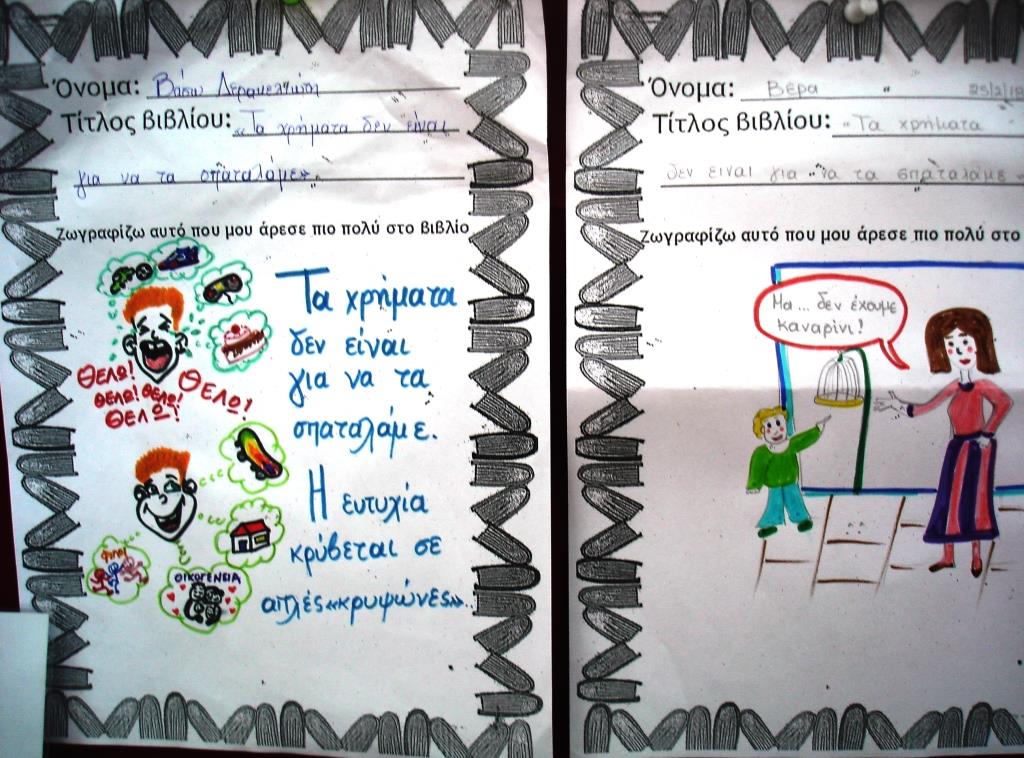 Όνομα: Βάσω
Τίτλος βιβλίου: «Τα χρήματα δεν είναι
για να τα σπαταλάμε».
Ζωγραφίζω αυτό που μου άρεσε πιο πολύ στο βιβλίο
ΘΕΛΩ!
ΘΕΛΩ! ΘΕΛΩ!
ΘΕΛΩ!
ΘΕΛΩ!
Τα χρήματα
δεν είναι
για να τα
σπαταλάμε.
Η ευτυχία
κρύβεται σε
απλές «κρυψώνες».
ΟΙΚΟΓΕΝΕΙΑ
Όνομα: Βέρα
Τίτλος βιβλίου: "Τα χρήματα
δεν ειναι για να τα σπαταλάμε
Ζωγραφίζω αυτό που μου άρεσε πιο πολύ στο
Μα... δεν έχουμε
καναρίνι!